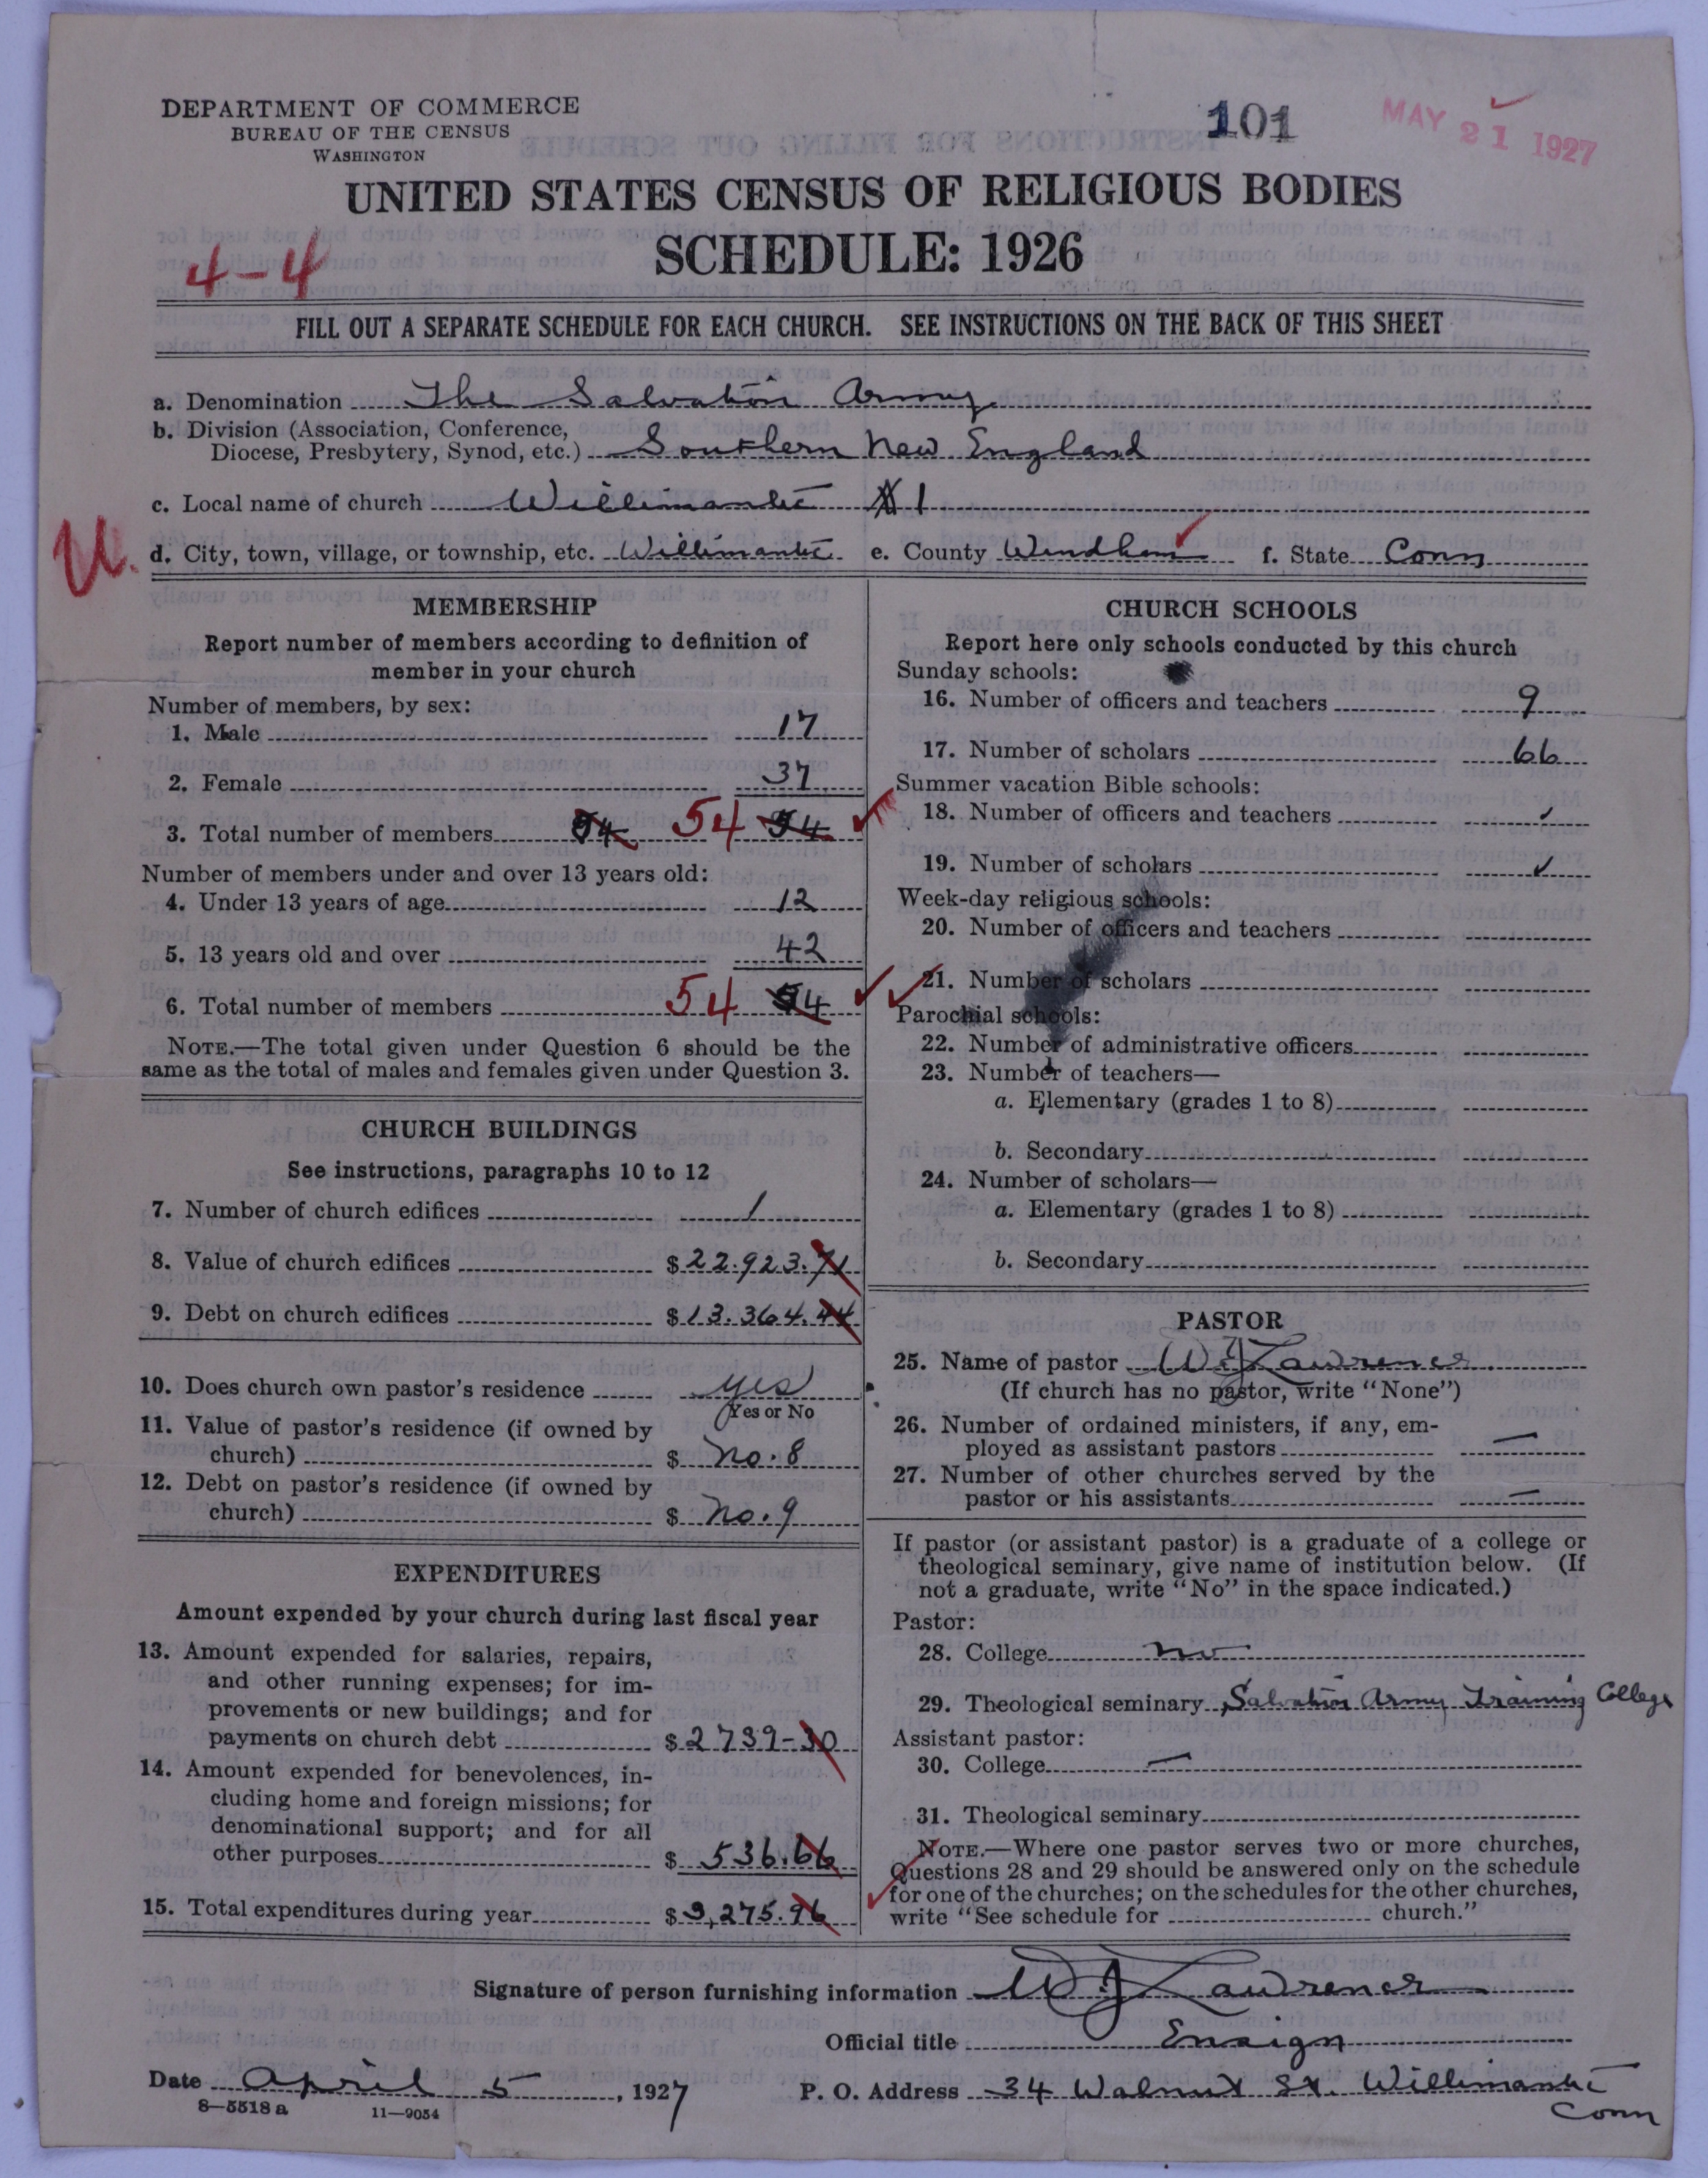 DEPARTMENT OF COMMERCE
BUREAU OF THE CENSUS
WASHINGTON
101
MAY 21 1927
UNITED STATES CENSUS OF RELIGIOUS BODIES
SCHEDULE: 1926
4-4
FILL OUT A SEPARATE SCHEDULE FOR EACH CHURCH. SEE INSTRUCTIONS ON THE BACK OF THIS SHEET
a. Denomination The Salvation Army
b. Division (Association, Conference,
Diocese, Presbytery, Synod, etc.) Southern New England
c. Local name of church Willimantic # 1
U.
d. City, town, village, or township, etc. Willimantic e. County Windham f. State Conn
MEMBERSHIP
Report number of members according to definition of
member in your church
Number of members, by sex:
1. Male 17
2. Female 37
3. Total number of members 54 54 54
Number of members under and over 13 years old:
4. Under 13 years of age 12
5. 13 years old and over 42
6. Total number of members 54 54
NOTE.—The total given under Question 6 should be the
same as the total of males and females given under Question 3.
CHURCH BUILDINGS
See instructions, paragraphs 10 to 12
7. Number of church edifices 1
8. Value of church edifices $22.923.71
9. Debt on church edifices $13.364.44
10. Does church own pastor's residence yes
Yes or No
11. Value of pastor's residence (if owned by
church) $ No. 8
12. Debt on pastor's residence (if owned by
church) $ No. 9
EXPENDITURES
Amount expended by your church during last fiscal year
13. Amount expended for salaries, repairs,
and other running expenses; for im-
provements or new buildings; and for
payments on church debt $2739-30
14. Amount expended for benevolences, in-
cluding home and foreign missions; for
denominational support; and for all
other purposes $ 536.66
15. Total expenditures during year $3,275.96
CHURCH SCHOOLS
Report here only schools conducted by this church
Sunday schools:
16. Number of officers and teachers 9
17. Number of scholars 66
Summer vacation Bible schools:
18. Number of officers and teachers ✓
19. Number of scholars ✓
Week-day religious schools:
20. Number of officers and teachers
21. Number of scholars
Parochial schools:
22. Number of administrative officers
23. Number of teachers—
a. Elementary (grades 1 to 8)
b. Secondary
24. Number of scholars—
a. Elementary (grades 1 to 8)
b. Secondary
PASTOR
25. Name of pastor W J Lawrence
(If church has no pastor, write "None")
26. Number of ordained ministers, if any, em-
ployed as assistant pastors —
27. Number of other churches served by the
pastor or his assistants —
If pastor (or assistant pastor) is a graduate of a college or
theological seminary, give name of institution below. (If
not a graduate, write "No" in the space indicated.)
Pastor:
28. College no
29. Theological seminary Salvation Army Training College
Assistant pastor:
30. College —
31. Theological seminary
NOTE.—Where one pastor serves two or more churches,
Questions 28 and 29 should be answered only on the schedule
for one of the churches; on the schedules for the other churches,
write "See schedule for church."
Signature of person furnishing information W J Lawrence
Official title Ensign
Date April 5, 1927 P. O. Address 34 Walnut St. Willimantic
Conn
8—5518a 11—9054